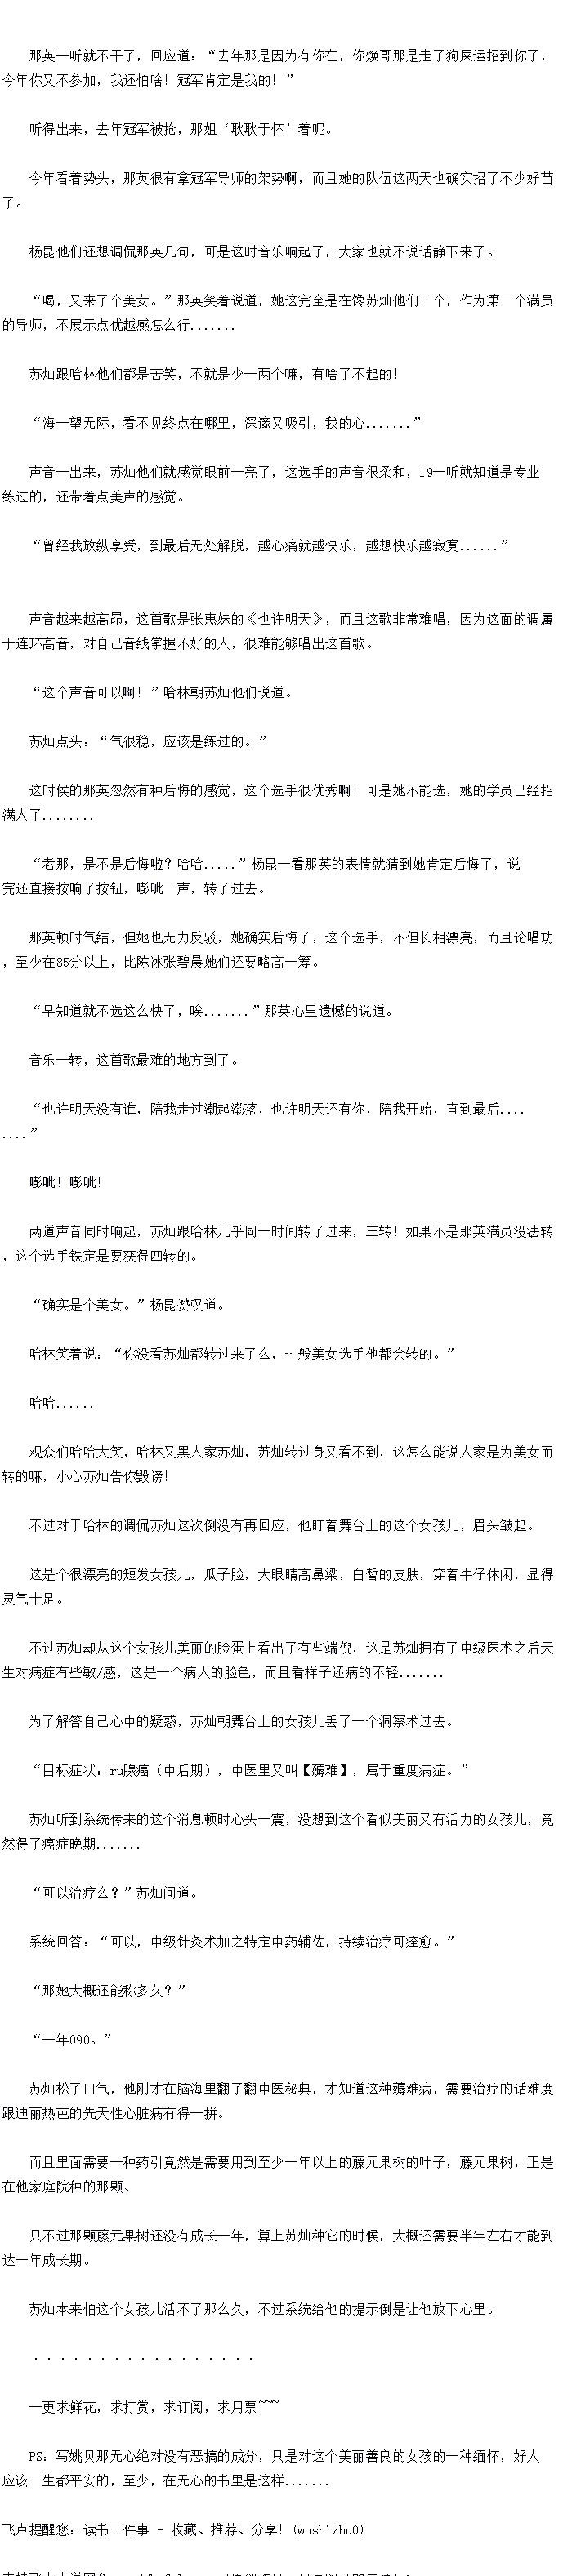 那英一听就不干了，回应道：“去年那是因为有你在，你焕哥那是走了狗屎运招到你了，
今年你又不参加，我还怕啥！冠军肯定是我的！”
听得出来，去年冠军被抢，那姐‘耿耿于怀’着呢。
今年看着势头，那英很有拿冠军导师的架势啊，而且她的队伍这两天也确实招了不少好苗
子。
杨昆他们还想调侃那英几句，可是这时音乐响起了，大家也就不说话静下来了。
“喝，又来了个美女。”那英笑着说道，她这完全是在馋苏灿他们三个，作为第一个满员
的导师，不展示点优越感怎么行.......
苏灿跟哈林他们都是苦笑，不就是少一两个嘛，有啥了不起的！
“海一望无际，看不见终点在哪里，深邃又吸引，我的心.......”
声音一出来，苏灿他们就感觉眼前一亮了，这选手的声音很柔和，19一听就知道是专业
练过的，还带着点美声的感觉。
“曾经我放纵享受，到最后无处解脱，越心痛就越快乐，越想快乐越寂寞......”
声音越来越高昂，这首歌是张惠妹的《也许明天》，而且这歌非常难唱，因为这面的调属
于连环高音，对自己音线掌握不好的人，很难能够唱出这首歌。
“这个声音可以啊！”哈林朝苏灿他们说道。
苏灿点头：“气很稳，应该是练过的。”
这时候的那英忽然有种后悔的感觉，这个选手很优秀啊！可是她不能选，她的学员已经招
满人了........
“老那，是不是后悔啦？哈哈.....”杨昆一看那英的表情就猜到她肯定后悔了，说
完还直接按响了按钮，嘭呲一声，转了过去。
那英顿时气结，但她也无力反驳，她确实后悔了，这个选手，不但长相漂亮，而且论唱功
，至少在85分以上，比陈冰张碧晨她们还要略高一筹。
“早知道就不选这么快了，唉.......”那英心里遗憾的说道。
音乐一转，这首歌最难的地方到了。
“也许明天没有谁，陪我走过潮起潮落，也许明天还有你，陪我开始，直到最后....
....”
嘭呲！嘭呲！
两道声音同时响起，苏灿跟哈林几乎同一时间转了过来，三转！如果不是那英满员没法转
，这个选手铁定是要获得四转的。
“确实是个美女。”杨昆道。
哈林笑着说：“你没看苏灿都转过来了么，一般美女选手他都会转的。”
哈哈......
观众们哈哈大笑，哈林又黑人家苏灿，苏灿转过身又看不到，这怎么能说人家是为美女而
转的嘛，小心苏灿告你毁谤！
不过对于哈林的调侃苏灿这次倒没有再回应，他盯着舞台上的这个女孩儿，眉头皱起。
这是个很漂亮的短发女孩儿，瓜子脸，大眼睛高鼻梁，白皙的皮肤，穿着牛仔休闲，显得
灵气十足。
不过苏灿却从这个女孩儿美丽的脸蛋上看出了有些端倪，这是苏灿拥有了中级医术之后天
生对病症有些敏/感，这是一个病人的脸色，而且看样子还病的不轻.......
为了解答自己心中的疑惑，苏灿朝舞台上的女孩儿丢了一个洞察术过去。
“目标症状：ru腺癌（中后期），中医里又叫【薅难】，属于重度病症。”
苏灿听到系统传来的这个消息顿时心头一震，没想到这个看似美丽又有活力的女孩儿，竟
然得了癌症晚期.......
“可以治疗么？”苏灿问道。
系统回答：“可以，中级针灸术加之特定中药辅佐，持续治疗可痊愈。”
“那她大概还能称多久？”
“一年090。”
苏灿松了口气，他刚才在脑海里翻了翻中医秘典，才知道这种薅难病，需要治疗的话难度
跟迪丽热芭的先天性心脏病有得一拼。
而且里面需要一种药引竟然是需要用到至少一年以上的藤元果树的叶子，藤元果树，正是
在他家庭院种的那颗、
只不过那颗藤元果树还没有成长一年，算上苏灿种它的时候，大概还需要半年左右才能到
达一年成长期。
苏灿本来怕这个女孩儿活不了那么久，不过系统给他的提示倒是让他放下心里。
．．．．．．．．．．．．．．．．．
一更求鲜花，求打赏，求订阅，求月票~~~
PS：写姚贝那无心绝对没有恶搞的成分，只是对这个美丽善良的女孩的一种缅怀，好人
应该一生都平安的，至少，在无心的书里是这样.......
飞卢提醒您：读书三件事 - 收藏、推荐、分享！(woshizhu0)